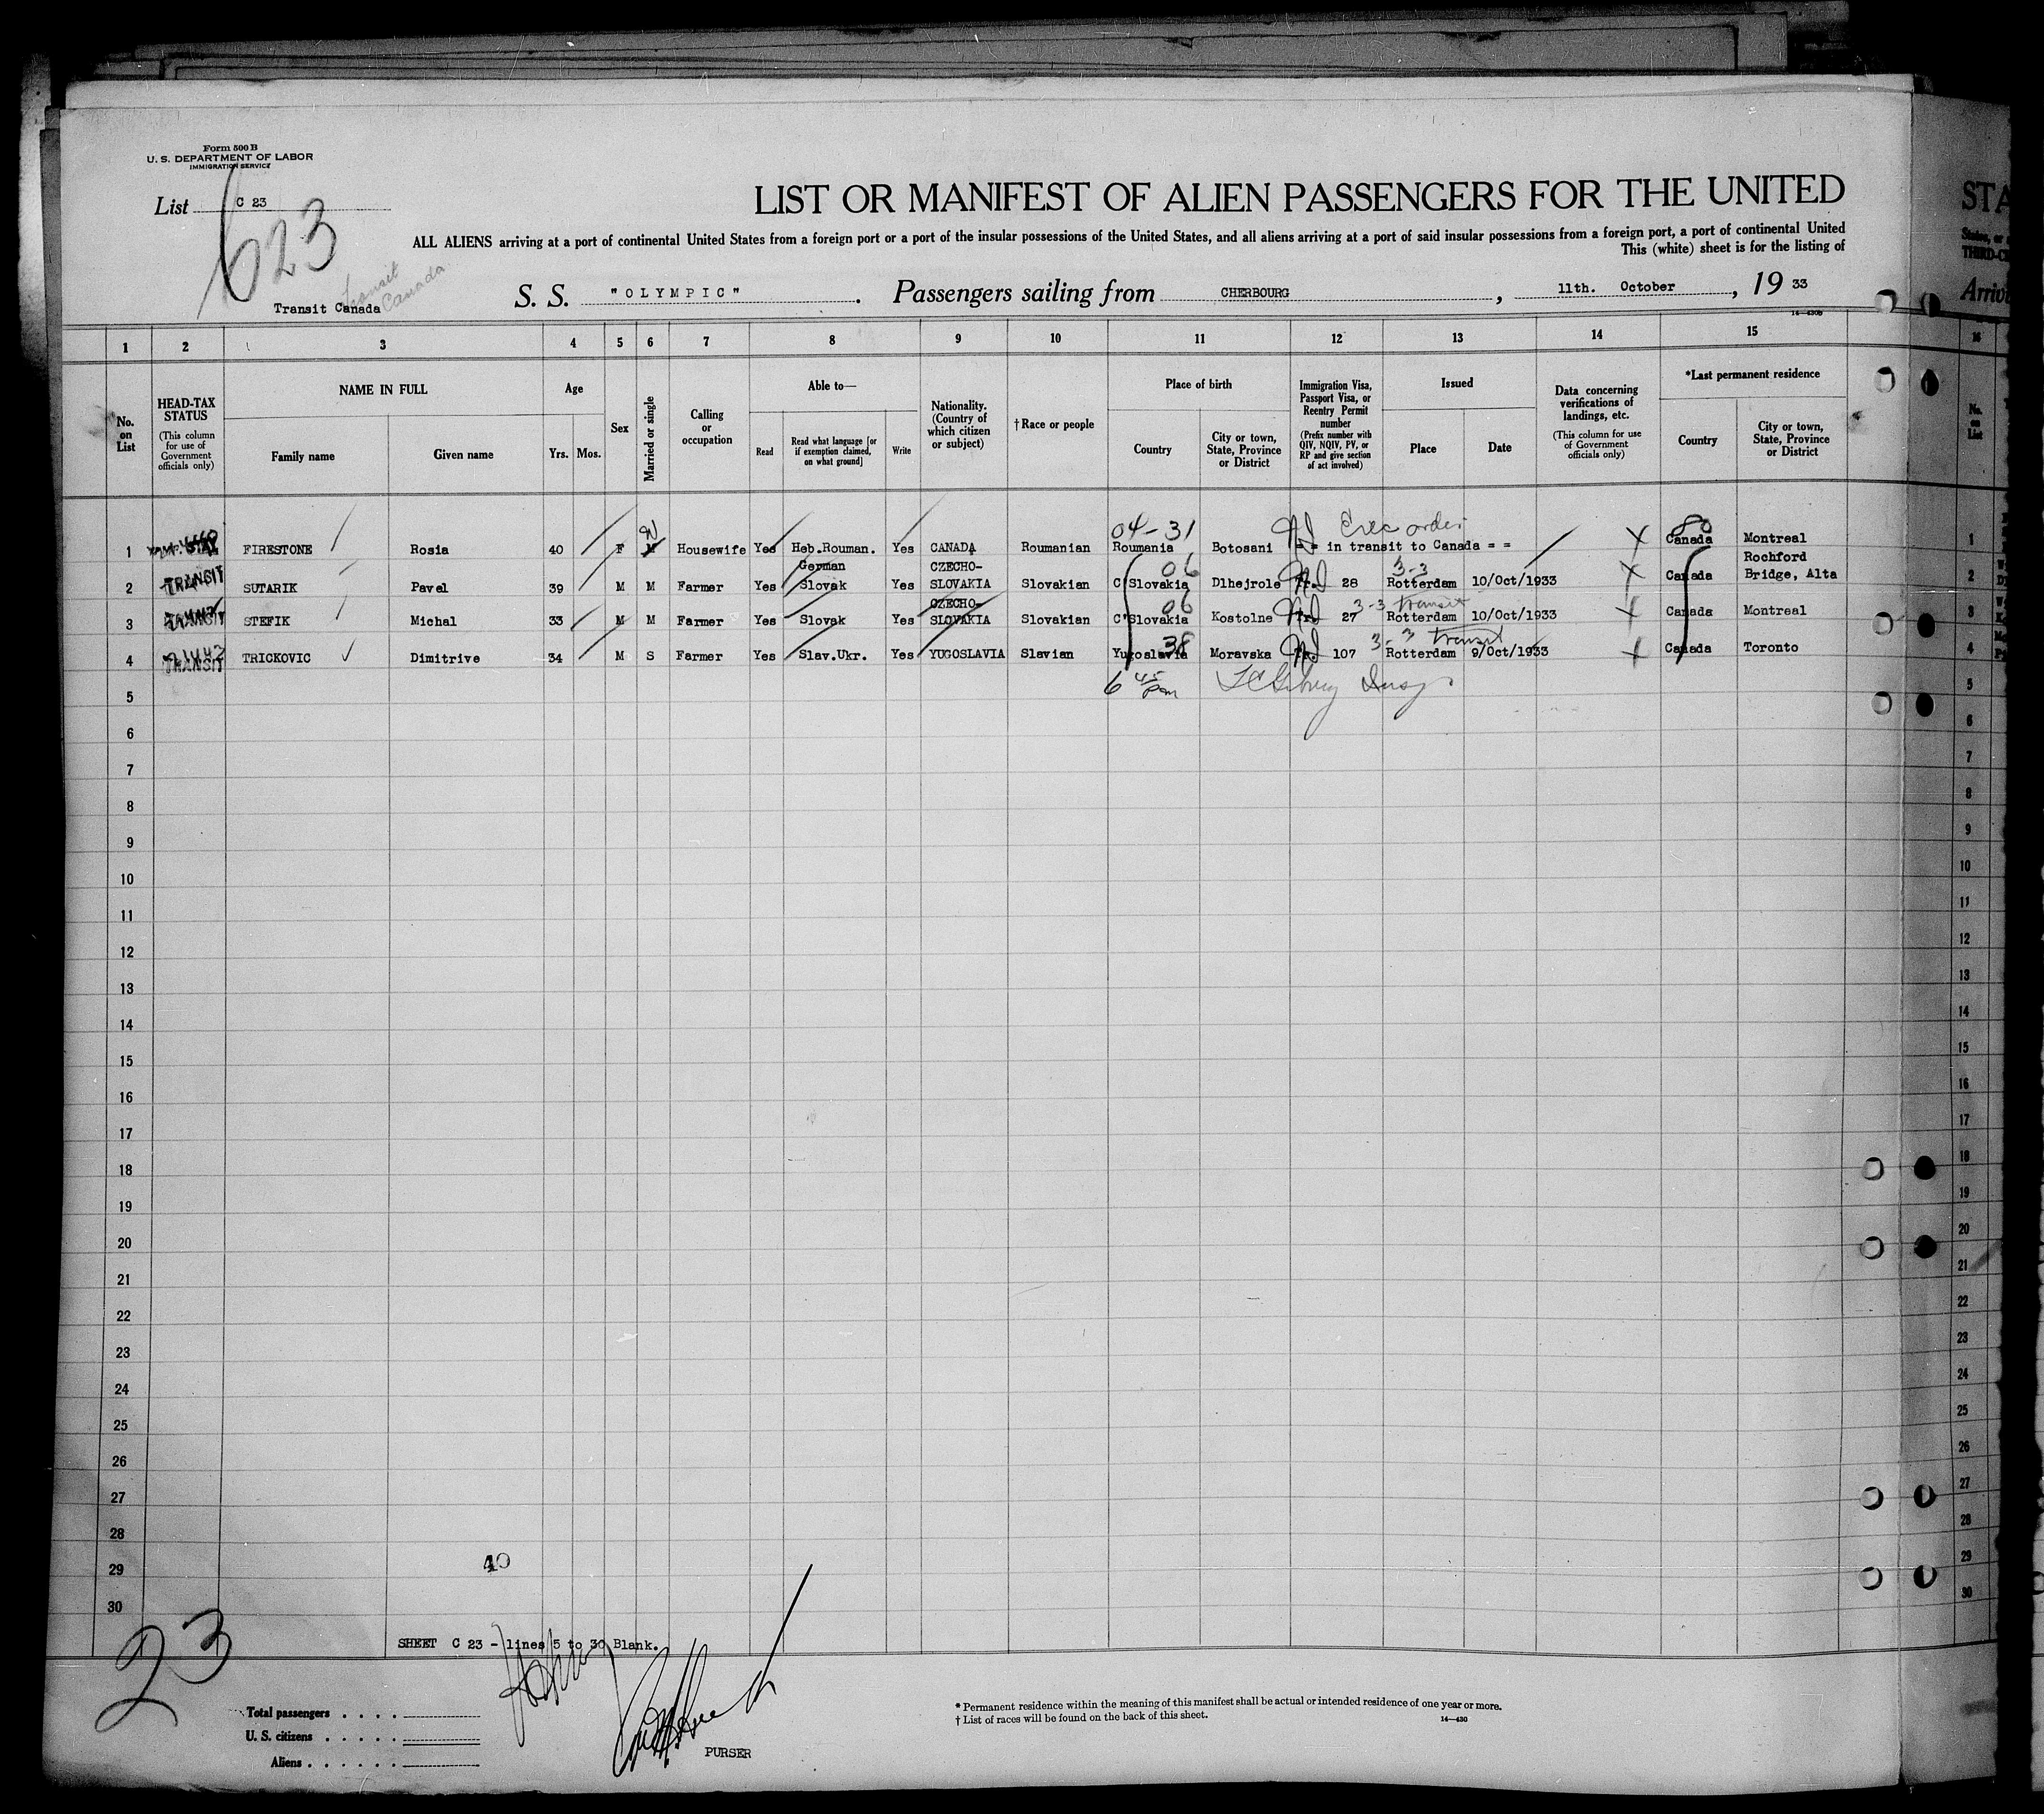 Form 500 B
U. S. DEPARTMENT OF LABOR
IMMIGRATION SERVICE
List C 23
623
Transit Canada
Transit Canada
LIST OR MANIFEST OF ALIEN PASSENGERS FOR THE UNITED
ALL ALIENS arriving at a port of continental United States from a foreign port or a port of the insular possessions of the United States, and all aliens arriving at a port of said insular possessions from a foreign port, a port of continental United
This (white) sheet is for the listing of
S. S. "OLYMPIC". Passengers sailing from CHERBOURG, 11th. October, 19 33
14—430B
1 2 3 4 5 6 7 8 9 10 11 12 13 14 15
No. on List
HEAD-TAX STATUS (This column for use of Government officials only)
NAME IN FULL
Family name Given name
Age
Yrs. Mos.
Sex
Married or single
Calling or occupation
Able to—
Read Read what language [or if exemption claimed, on what ground] Write
Nationality. (Country of which citizen or subject)
†Race or people
Place of birth
Country City or town, State, Province or District
Immigration Visa, Passport Visa, or Reentry Permit number (Prefix number with QIV, NQIV, PV, or RP and give section of act involved)
Issued
Place Date
Data concerning verifications of landings, etc. (This column for use of Government officials only)
*Last permanent residence
Country City or town, State, Province or District
04-31 Exec order 80
1 FIRESTONE Rosia 40 F M Housewife Yes Heb.Rouman. Yes CANADA Roumanian Roumania Botosani = = in transit to Canada = = Canada Montreal
German CZECHO- 06 3-3 Rochford
2 TRANSIT SUTARIK Pavel 39 M M Farmer Yes Slovak Yes SLOVAKIA Slovakian C'Slovakia Dlhejrole Tr. 28 Rotterdam 10/Oct/1933 Canada Bridge, Alta
CZECHO- 06 3-3 transit
3 TRANSIT STEFIK Michal 33 M M Farmer Yes Slovak Yes SLOVAKIA Slovakian C'Slovakia Kostolne Tr. 27 Rotterdam 10/Oct/1933 Canada Montreal
38 3-3 transit
4 TRANSIT TRICKOVIC Dimitrive 34 M S Farmer Yes Slav.Ukr. Yes YUGOSLAVIA Slavian Yugoslavia Moravska Tr. 107 Rotterdam 9/Oct/1933 Canada Toronto
5 6 45 pm
6
7
8
9
10
11
12
13
14
15
16
17
18
19
20
21
22
23
24
25
26
27
28
29 40
30
SHEET C 23 - lines 5 to 30 Blank.
23
Total passengers
U. S. citizens
Aliens
PURSER
* Permanent residence within the meaning of this manifest shall be actual or intended residence of one year or more.
† List of races will be found on the back of this sheet.
14—430
STA
Arriv
16
No. on List
1
2
3
4
5
6
7
8
9
10
11
12
13
14
15
16
17
18
19
20
21
22
23
24
25
26
27
28
29
30